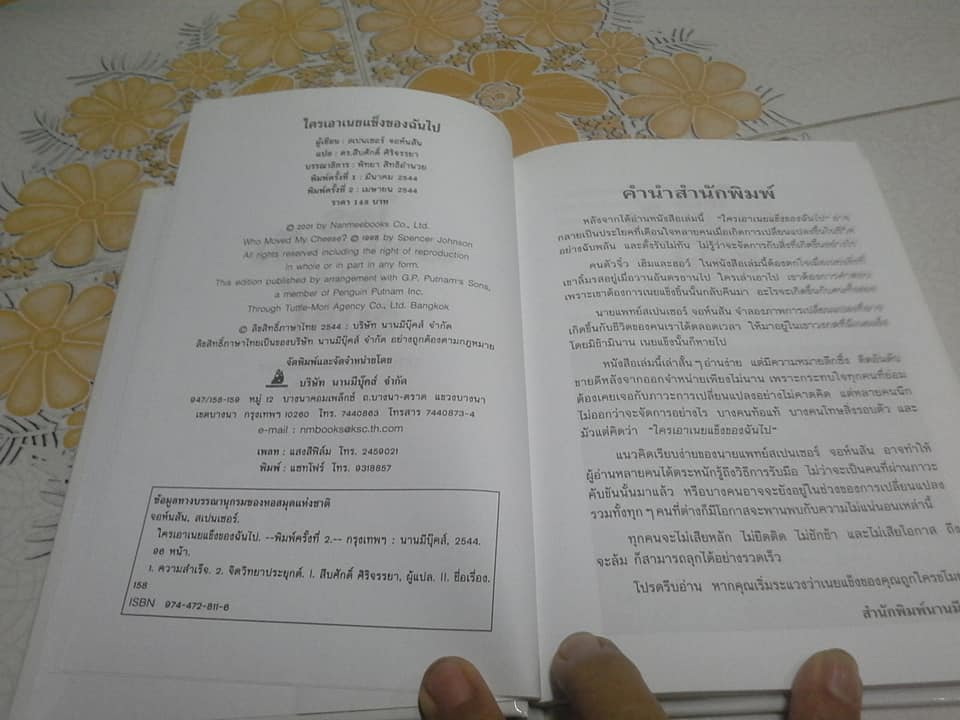 ใครเอาเนยแข็งของฉันไป
ผู้เขียน : สเปนเซอร์ จอห์นสัน
แปล : ดร.สืบศักดิ์ ศิริจรรยา
บรรณาธิการ : พัทยา สิทธิอำนวย
พิมพ์ครั้งที่ 1 : มีนาคม 2544
พิมพ์ครั้งที่ 2 : เมษายน 2544
ราคา 145 บาท
© 2001 by Nanmeebooks Co., Ltd.
Who Moved My Cheese? © 1998 by Spencer Johnson
All rights reserved including the right of reproduction
in whole or in part in any form.
This edition published by arrangement with G.P. Putnam's Sons,
a member of Penguin Putnam Inc.
Through Tuttle-Mori Agency Co., Ltd. Bangkok
© ลิขสิทธิ์ภาษาไทย 2544 : บริษัท นานมีบุ๊คส์ จำกัด
ลิขสิทธิ์ภาษาไทยเป็นของบริษัท นานมีบุ๊คส์ จำกัด อย่างถูกต้องตามกฎหมาย
จัดพิมพ์และจัดจำหน่ายโดย
บริษัท นานมีบุ๊คส์ จำกัด
947/158-159 หมู่ 12 บางนาคอมเพล็กซ์ ถ.บางนา-ตราด แขวงบางนา
เขตบางนา กรุงเทพฯ 10260 โทร. 7440863 โทรสาร 7440873-4
e-mail : nmbooks@ksc.th.com
เพลท : แสงสีฟิล์ม โทร. 2459021
พิมพ์ : แซทโฟร์ โทร. 9318857
ข้อมูลทางบรรณานุกรมของหอสมุดแห่งชาติ
จอห์นสัน, สเปนเซอร์.
ใครเอาเนยแข็งของฉันไป. --พิมพ์ครั้งที่ 2.-- กรุงเทพฯ : นานมีบุ๊คส์, 2544.
96 หน้า.
1. ความสำเร็จ. 2. จิตวิทยาประยุกต์. I. สืบศักดิ์ ศิริจรรยา, ผู้แปล. II. ชื่อเรื่อง.
158
ISBN 974-472-811-6
คำนำสำนักพิมพ์
หลังจากได้อ่านหนังสือเล่มนี้ "ใครเอาเนยแข็งของฉันไป" อาจ
กลายเป็นประโยคที่เตือนใจหลายคนเมื่อเกิดการเปลี่ยนแปลงขึ้นในชีวิต
อย่างฉับพลัน และตั้งรับไม่ทัน ไม่รู้ว่าจะจัดการกับสิ่งที่เกิดขึ้นอย่างไร
คนตัวจิ๋ว เฮ็มและฮอว์ ในหนังสือเล่มนี้ต้องตกใจเมื่อเนยแข็งที่
เขาลิ้มรสอยู่เมื่อวานอันตรธานไป ใครเล่าเอาไป เขาต้องการคำตอบ
เพราะเขาต้องการเนยแข็งชิ้นนั้นกลับคืนมา อะไรจะเกิดขึ้นกับคนทั้งสอง
นายแพทย์สเปนเซอร์ จอห์นสัน จำลองภาพการเปลี่ยนแปลงที่อาจ
เกิดขึ้นกับชีวิตของคนเราได้ตลอดเวลา ให้มาอยู่ในเขาวงกต
โดยมิช้ามินาน เนยแข็งนั้นก็หายไป
หนังสือเล่มนี้เล่าสั้นๆ อ่านง่าย แต่มีความหมายลึกซึ้ง ติดอันดับ
ขายดีหลังจากออกจำหน่ายเพียงไม่นาน เพราะกระทบใจทุกคนที่ย่อม
ต้องเคยเจอกับภาวะการเปลี่ยนแปลงอย่างไม่คาดคิด แต่หลายคนนึก
ไม่ออกว่าจะจัดการอย่างไร บางคนท้อแท้ บางคนโทษสิ่งรอบตัว และ
มัวแต่คิดว่า "ใครเอาเนยแข็งของฉันไป"
แนวคิดเรียบง่ายของนายแพทย์สเปนเซอร์ จอห์นสัน อาจทำให้
ผู้อ่านหลายคนได้ตระหนักรู้ถึงวิธีการรับมือ ไม่ว่าจะเป็นคนที่ผ่านภาวะ
คับขันนั้นมาแล้ว หรือบางคนอาจจะยังอยู่ในช่วงของการเปลี่ยนแปลง
รวมทั้งทุกๆ คนที่ต่างก็มีโอกาสจะพานพบกับความไม่แน่นอนเหล่านี้
ทุกคนจะไม่เสียหลัก ไม่ยึดติด ไม่ชักช้า และไม่เสียโอกาส ถึง
จะล้ม ก็สามารถลุกได้อย่างรวดเร็ว
โปรดรีบอ่าน หากคุณเริ่มระแวงว่าเนยแข็งของคุณถูกใครขโมย
สำนักพิมพ์นานมี